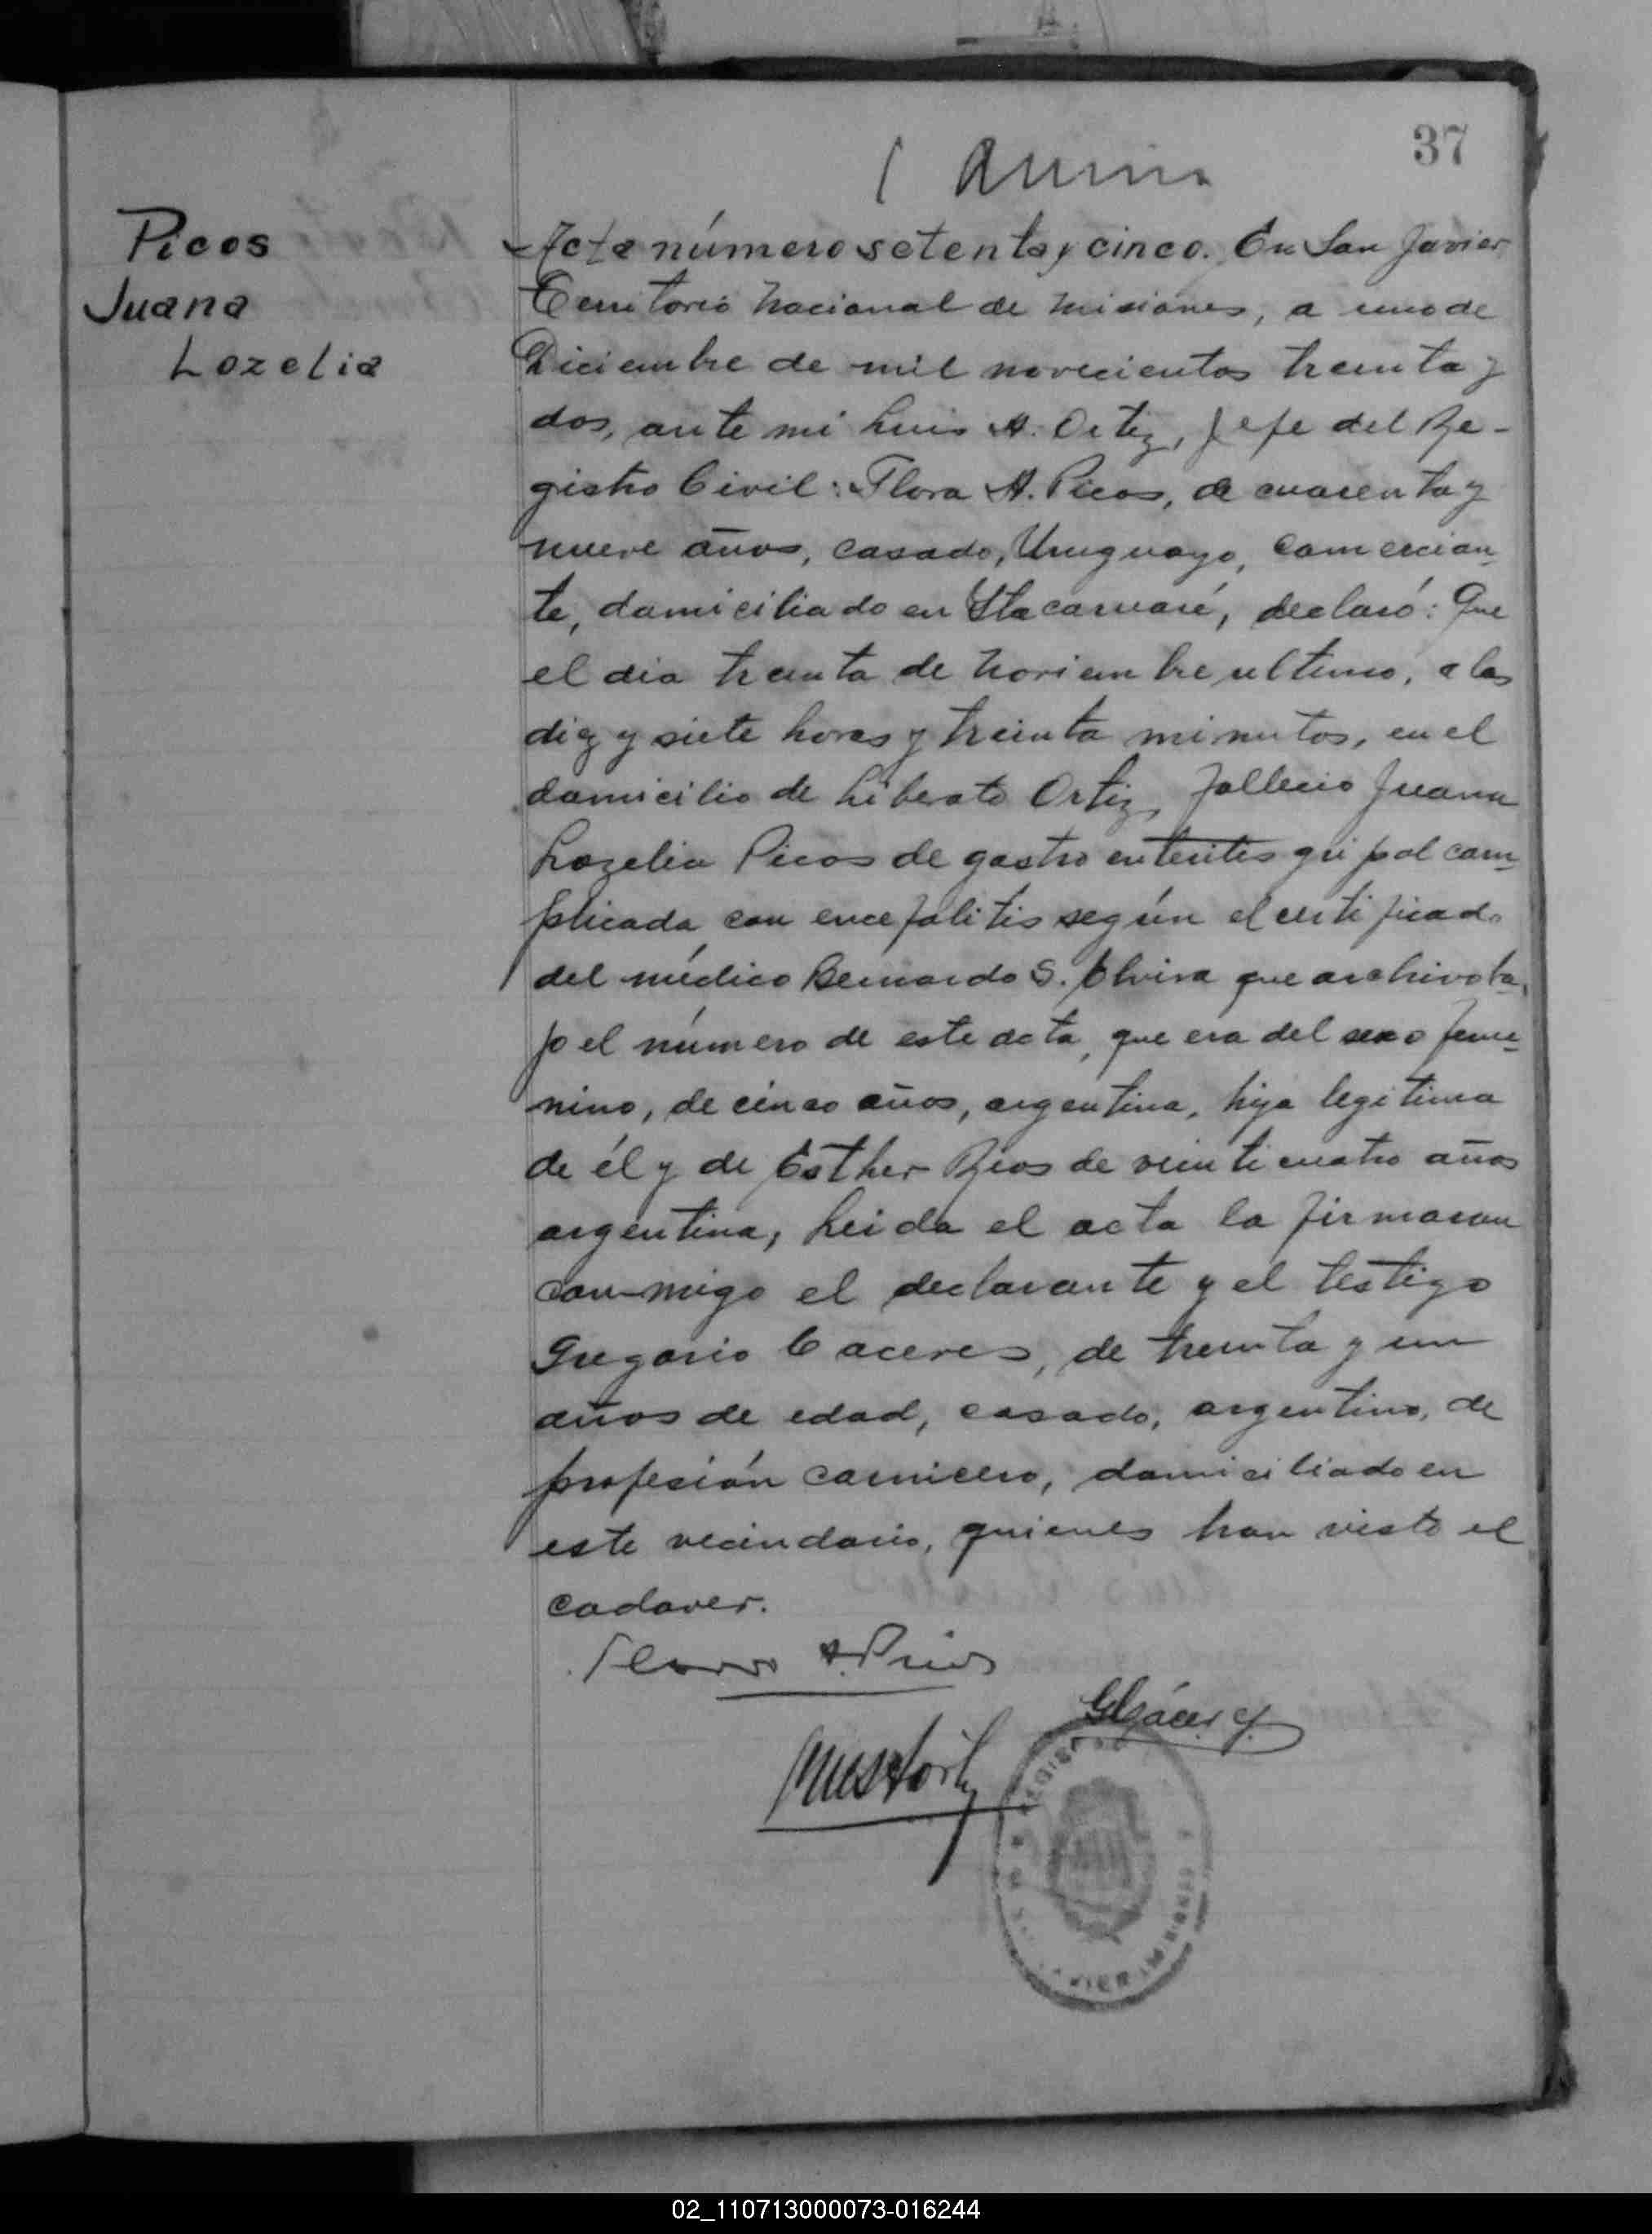 37
Picos
Juana
Lozelia
Acta número setenta y cinco. En San Javier
Territorio Nacional de Misiones, a uno de
Diciembre de mil novecientos treinta y
dos, ante mi Luis A. Ortiz, Jefe del Re-
gistro Civil: Floro A. Picos, de cuarenta y
nueve años, casado, Uruguayo, comercian-
te, domiciliado en Itacaruaré, declaró: Que
el dia treinta de Noviembre ultimo, a las
diez y siete horas y treinta minutos, en el
domicilio de Liberato Ortiz, fallecio Juana
Lozelia Picos de gastro enteritis gripal com-
plicada con encefalitis según el certificado
del médico Bernardo S. que archivo ba-
jo el número de este acta, que era del sexo feme-
nino, de cinco años, argentina, hija legitima
de él y de Esther Rios de veinticuatro años
argentina, Leida el acta la firmaron
conmigo el declarante y el testigo
Gregorio Caceres, de treinta y un
años de edad, casado, argentino, de
profesión carnicero, domiciliado en
este vecindario, quienes han visto el
cadaver.
Floro A. Picos
02_110713000073-016244